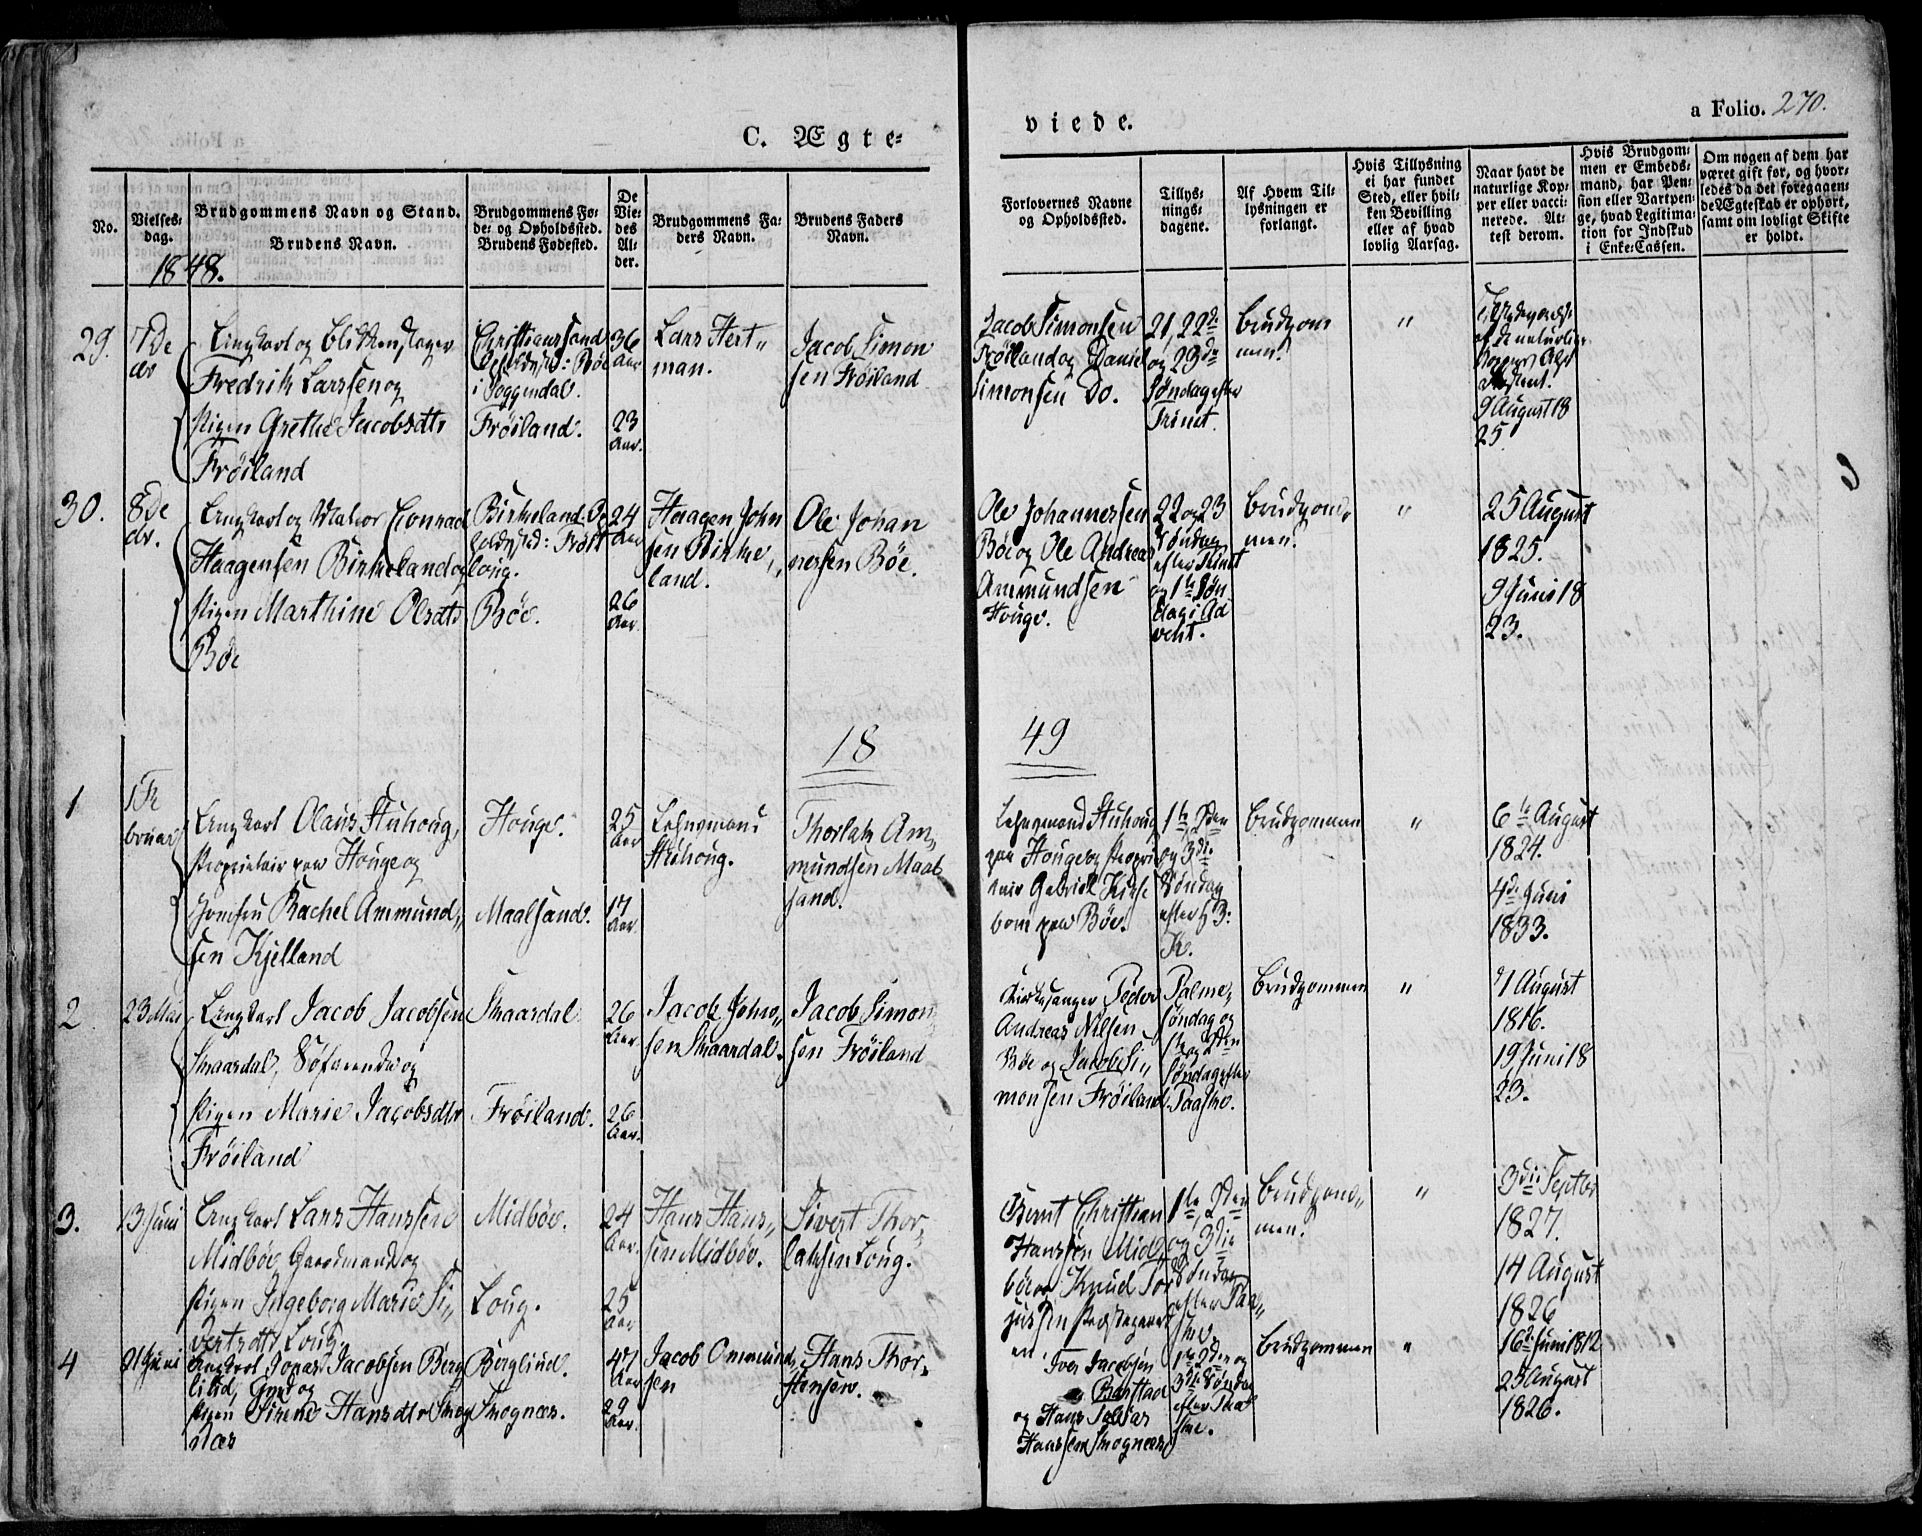 C. Ægte-
viede.
a Folio. 270.
No.
Vielses-
dag.
Brudgommens Navn og Stand.
Brudens Navn.
Brudgommens Fø-
de- og Opholdssted.
Brudens Fødested.
De
Vie-
des
Al-
der.
Brudgommens Fa-
ders Navn.
Brudens Faders
Navn.
Forlovernes Navne
og Opholdssted.
Tillys-
nings-
dagene.
Af Hvem Til-
lysningen er
forlangt.
Hvis Tillysning
ei har fundet
Sted, eller hvil-
ken Bevilling
eller af hvad
lovlig Aarsag.
Naar havt de
naturlige Kop-
per eller vacci-
nerede. At-
test derom.
Hvis Brudgom-
men er Embeds-
mand, har Pen-
sion eller Vartpen-
ge, hvad Legitima-
tion for Indskud
i Enke-Cassen.
Om nogen af dem har
været gift før, og hvor-
ledes da det foregaaen-
de Ægteskab er ophørt,
samt om lovligt Skifte
er holdt.
1848.
29.
7de
Ungkarl og Blikkenslager
Fredrik Larssen og
Pigen Grethe Jacobsdtr
Frøiland
Christianssand
i Soggendal.
Frøiland.
36
Aar
23
Aar.
Lars Hert-
man.
Jacob Simon
sen Frøiland
Jacob Simonsen
Frøiland og Daniel
Simonsen Do.
21, 22de
og 23de
Søndag efter
Trinit.
Brudgom
men.
"
af de naturlige
Kopper
9 August 18
25
30.
8de
Ungkarl og Conrad
Haagensen Birkeland og
Pigen Marthine Olsdtr
Bøe
Birkeland. Op
Bøe.
24
Aar
26
Aar.
Haagen John
sen Birke-
land.
Ole Johan
nessen Bøe.
Ole Johannessen
Bøe og Ole Andreas
Ammundsen
Houge.
22 og 23
Søndag
efter Trinit
og 1te Søn
dag i Ad
vent.
Brudgom-
men.
"
25 August
1825.
9 Juni 18
23.
18 49
1
Ungkarl Olaus Stuhoug,
Proprietair paa Houge og
Jomfru Rachel Ammund-
sen Kjelland
Houge.
Maalsand.
25
Aar
17
Aar.
Lehnsmand
Stuhoug.
Thorlak Am-
mundsen Maal
sand.
Lehnsmand Stuhoug
paa Houge og Propri
tair Gabriel Kirse
bom paa Bøe.
1te, 2den
og 3die
Søndag
efter H 3:
K.
Brudgommen
"
6te August
1824.
4de Juni
1833.
2
23 Mai
Ungkarl Jacob Jacobsen
Skaardal, Søfarende og
Pigen Marie Jacobsdtr
Frøiland
Skaardal
Frøiland.
26
Aar.
26
Aar.
Jacob John-
sen Skaardal.
Jacob Simon
sen Frøiland
Kirkesanger Peder
Andreas Nilsen
Bøe og Jacob Si-
monsen Frøiland.
Palme-
søndag og
1te og 2den
Søndag efter
Paaske.
Brudgommen
"
August
1816.
19 Juni 18
23.
3.
13 Juni
Ungkarl Lars Hanssen
Midbøe, Gaardmand og
Pigen Ingeborg Marie Si-
vertsdtr Loug.
Midbøe.
Loug.
24
Aar.
25
Aar
Hans Hans-
sen Midbøe.
Sivert Thor-
laksen Loug.
Bernt Christian
Hanssen Mid
bøe og Knud Tor
jussen
1te, 2den
og 3die
Søndag
efter Paa-
ske.
Brudgom-
men.
"
3die Septbr
1827.
14 August
1826
4
21 Juni
Ungkarl Jonas Jacobsen Berg
lilid, og
Pigen Sirene Hansdtr Skog
næs
Berglind.
Skognæs.
47
Aar
29
Aar.
Jacob Ommund
sen
Hans Thor-
stensen.
Iver Jacobsen
og Hans Tobias
Hanssen Skognæs
1te 2den og
3die Søndag
efter Paa
ske.
Brudgommen
"
16de Juni 1812
25 August
1826.